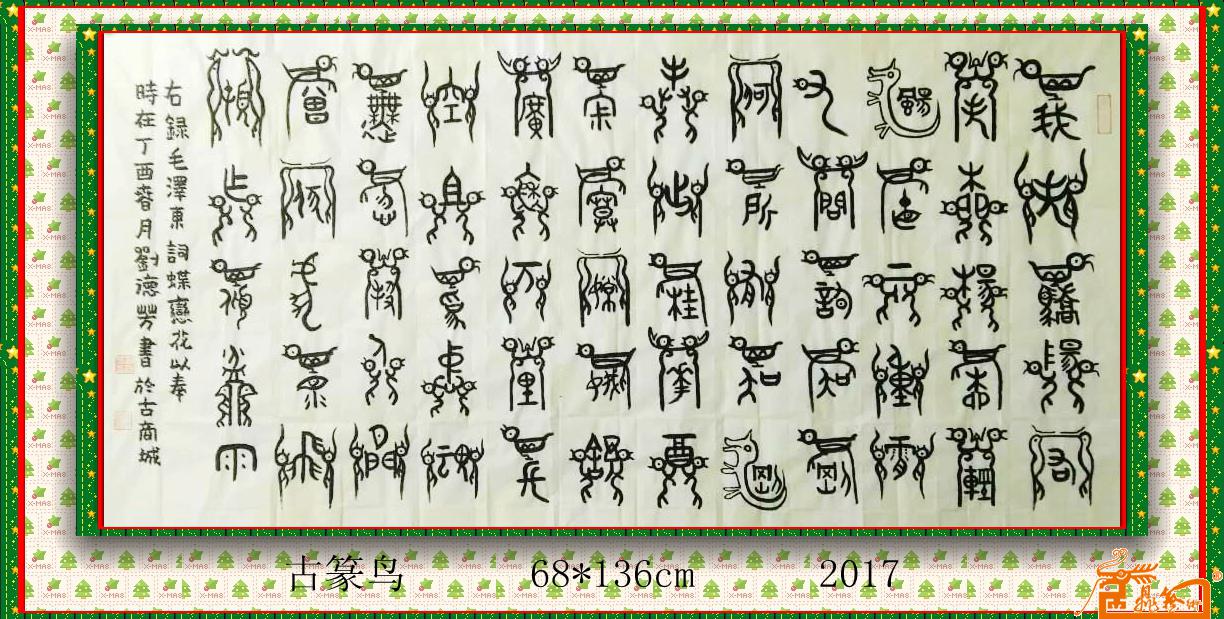 我失驕楊君
失柳楊柳輕
颺直上重霄
九問訊吳剛
何所有吳剛
捧出桂花酒
寂寞嫦娥舒
廣袖萬里長
空且為忠魂
舞忽報人間
曾伏虎淚飛
頓作傾盆雨
右録毛澤東詞蝶戀花以奉
時在丁酉春月劉德芳書於古商城
古篆鸟 68*136cm 2017